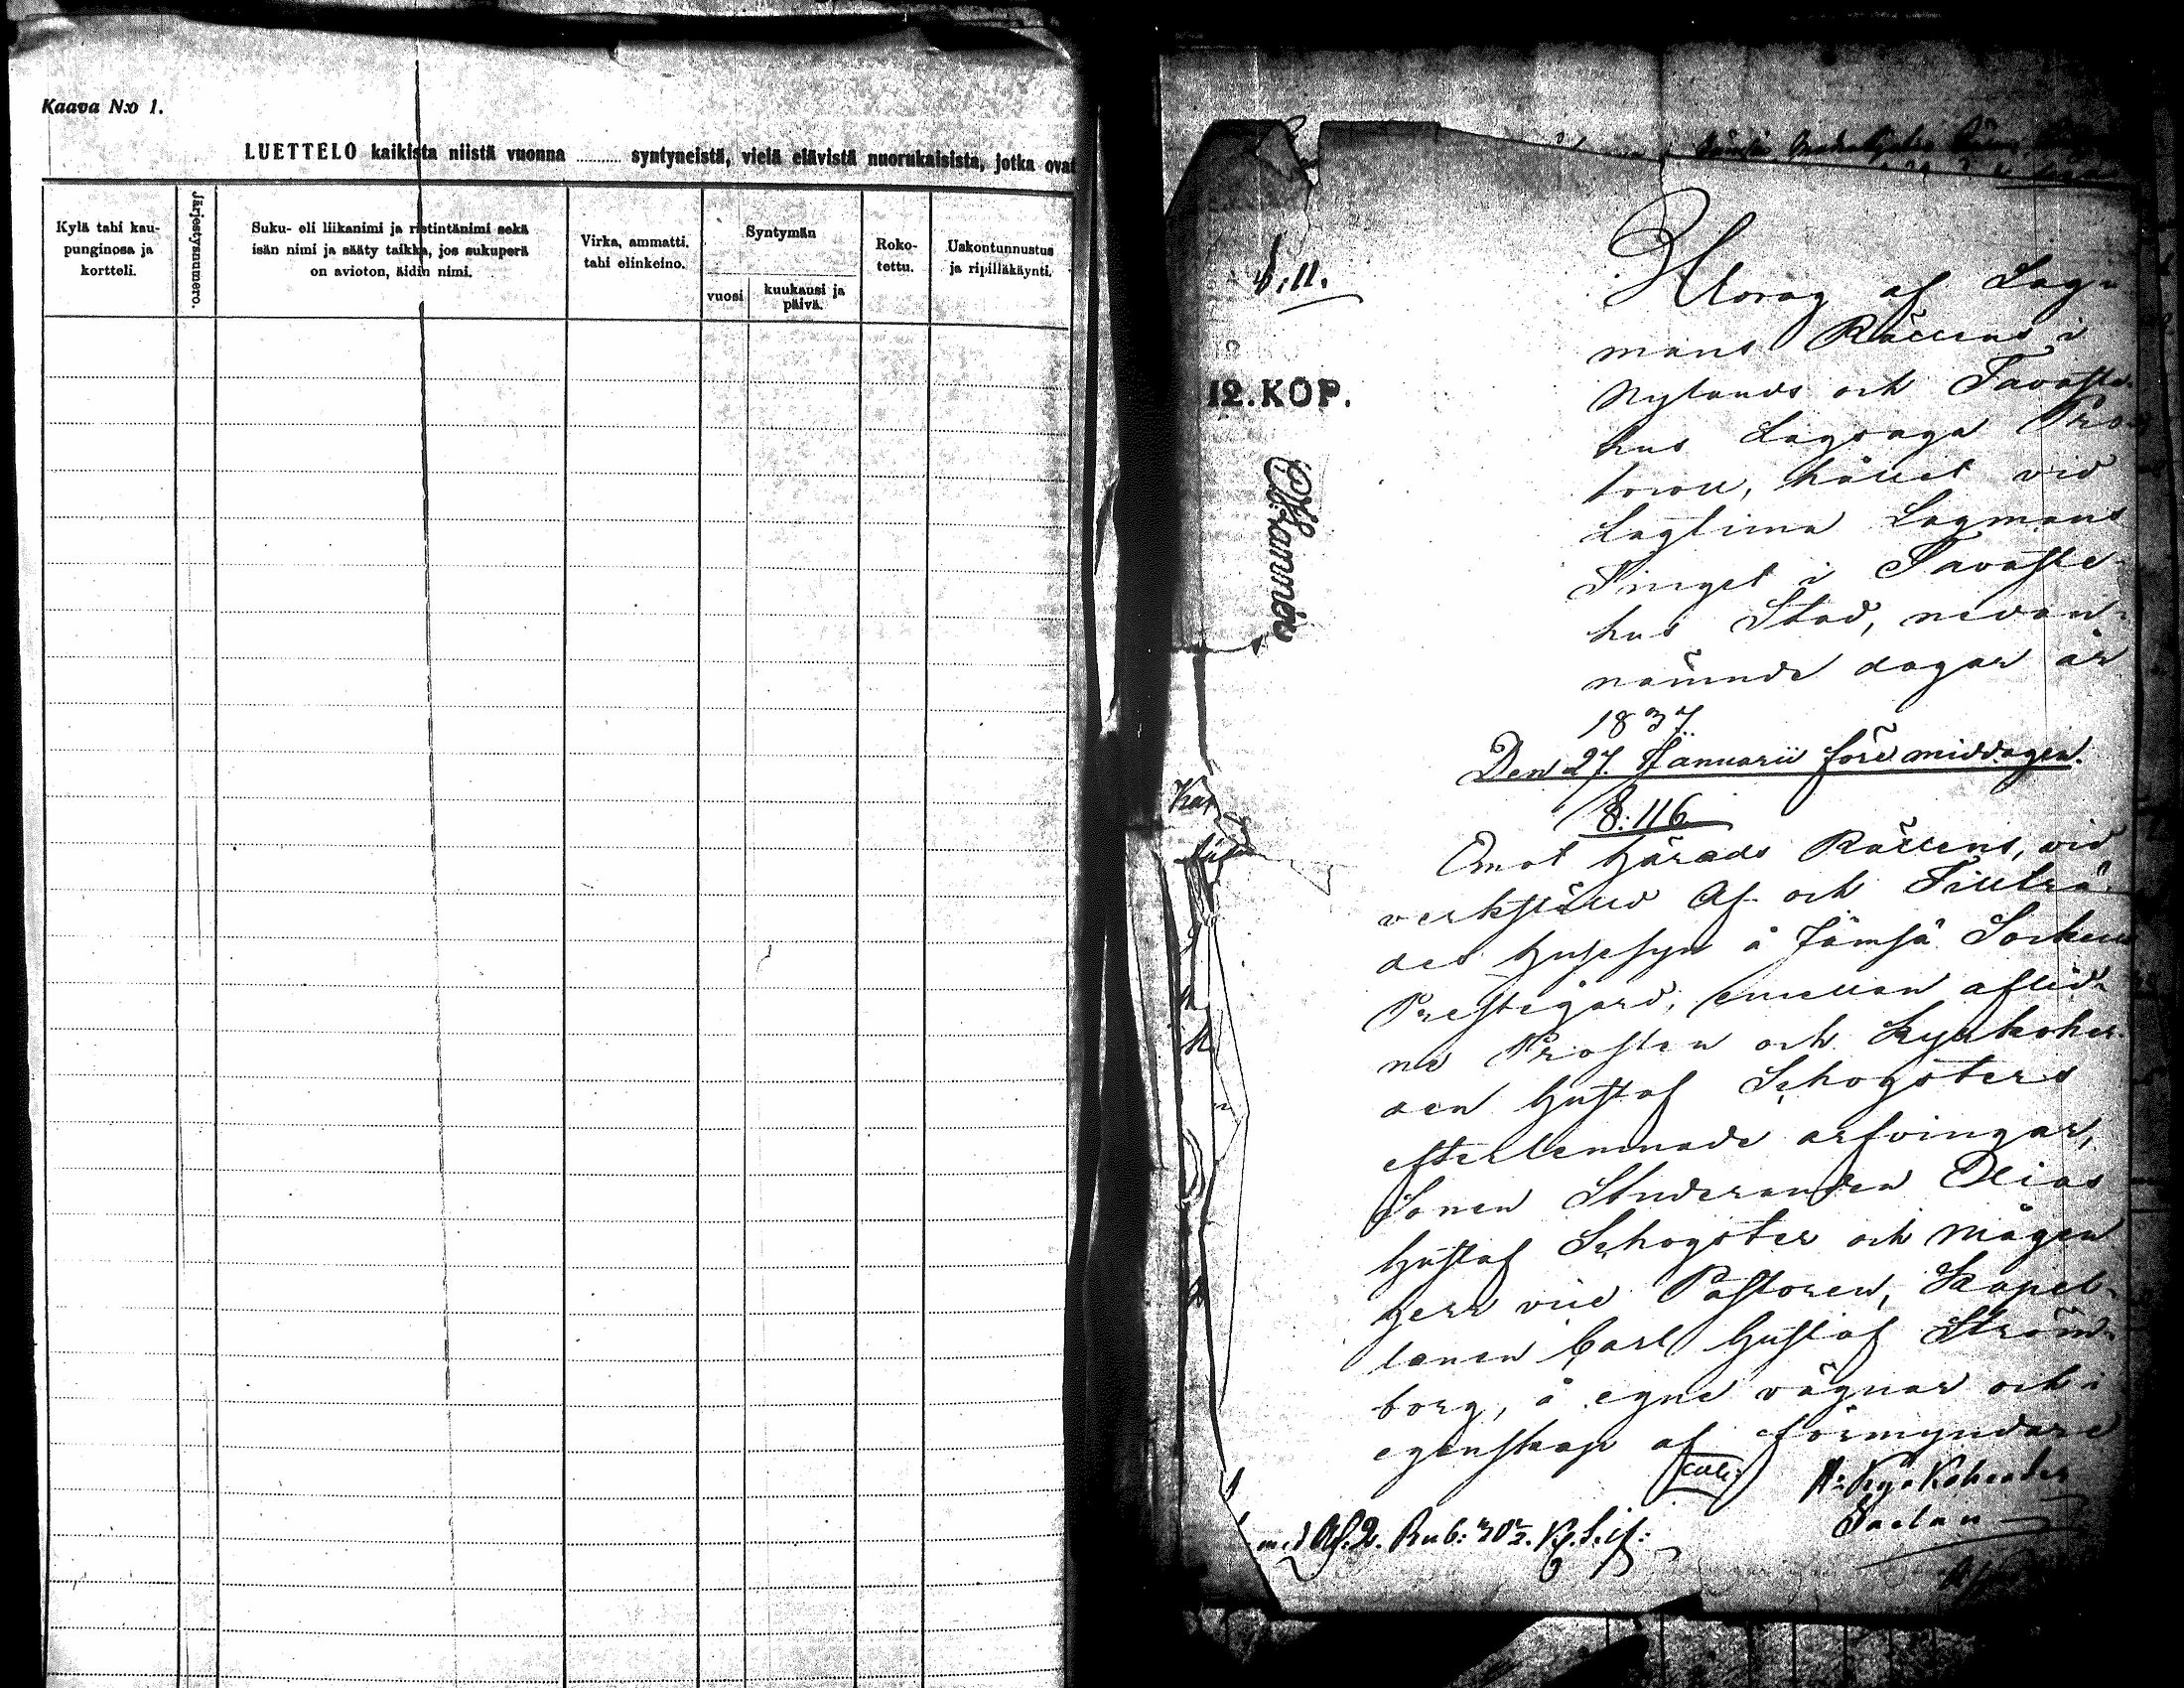 Kaava N:o 1.
LUETTELO kaikista niistä vuonna ........ syntyneistä, vielä elävistä nuorukaisista, jotka ovat
Kylä tahi kau-
punginosa ja
kortteli.
Järjestysnumero.
Suku- eli liikanimi ja ristintänimi sekä
isän nimi ja sääty taikka, jos sukuperä
on avioton, äidin nimi.
Virka, ammatti,
tahi elinkeino.
Syntymän
vuosi
kuukausi ja
päivä.
Roko-
tettu.
Uskontunnustus
ja ripilläkäynti.
12. KOP.
Utdrag af Lag-
mans Rättens i
Nylands och Tavaste-
hus Lagsaga Pro-
tocoll, hållet vid
Lagtima Lagmans
Tinget i Tavaste-
hus Stad, nedan-
nämnde dagar år
1837.
Den 27. Januarii före middagen.
§: 116.
Emot Härads Rättens, vid
verkställd Af- och Tillträ-
des Husesyn å Jämsä Sockens
Prestegård, emellan aflid-
ne Prosten och Kyrkoher-
den Gustaf Schogsters
efterlemnade arfvingar,
Sonen Studeranden Elias
Gustaf Schogster och Mågen
Herr vice Pastoren, Kapel-
lanen Carl Gustaf Ström-
borg, å egne vägnar och i
egenskap af Förmyndare
Kyrkoherden